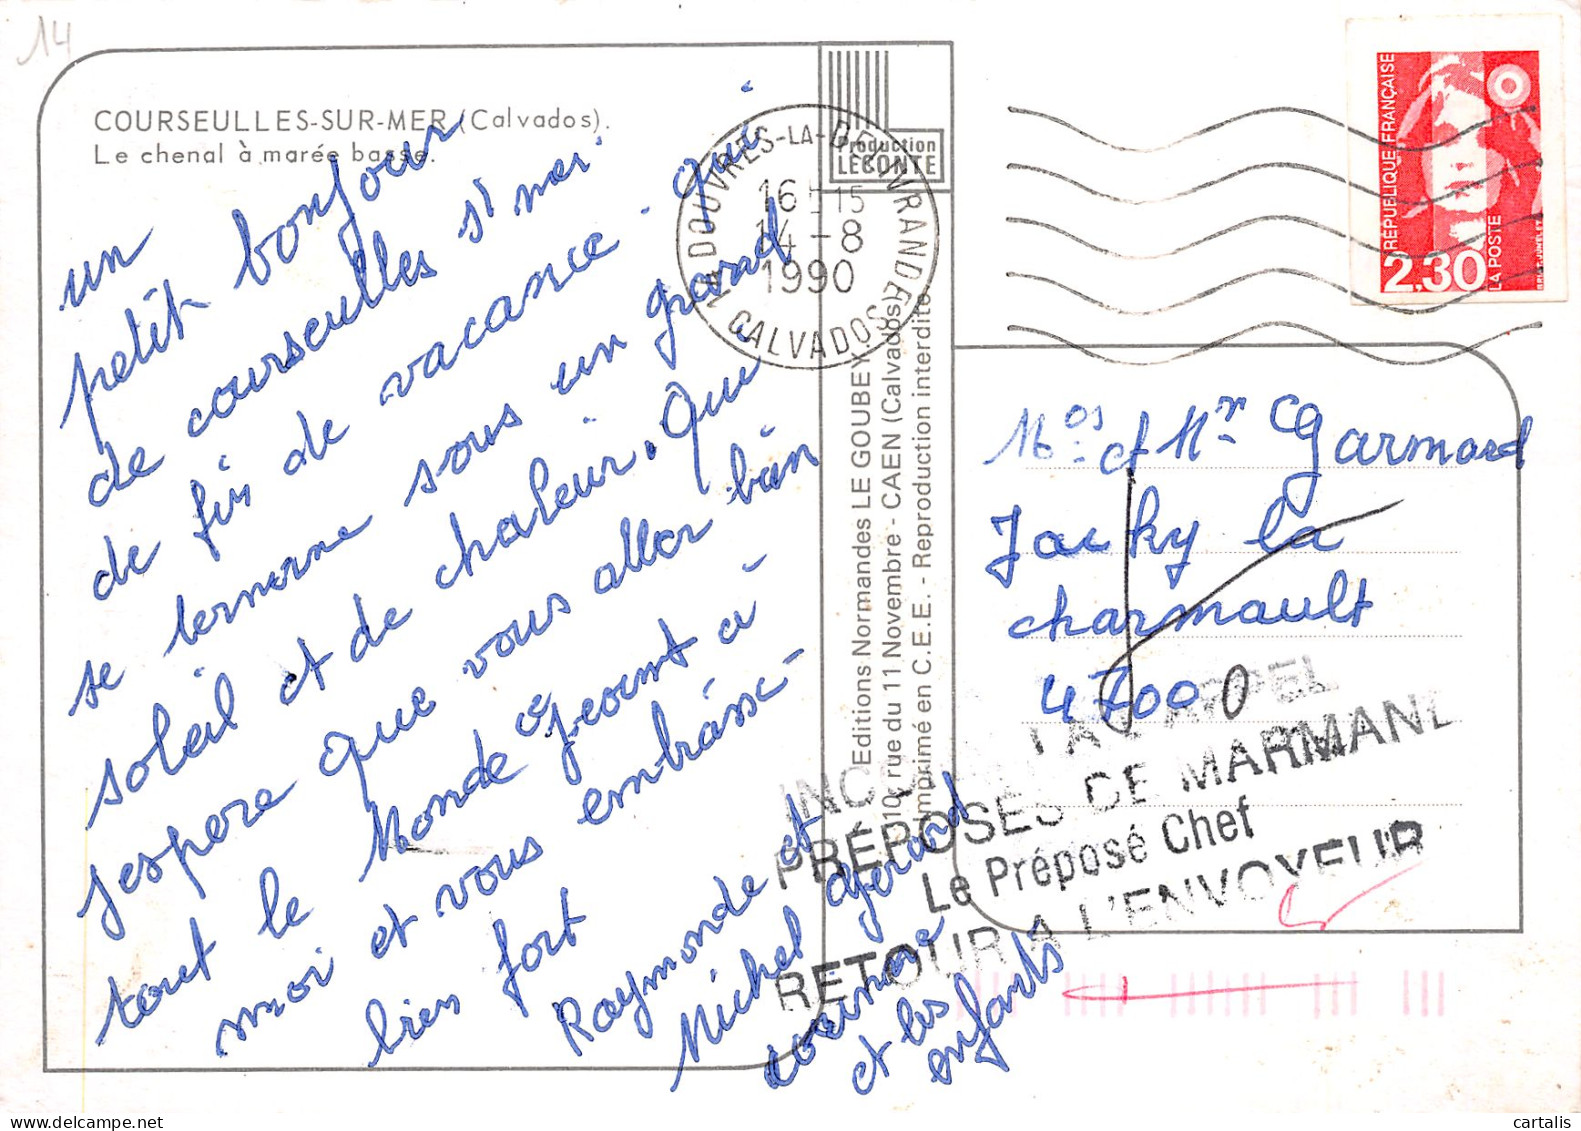 14
COURSEULLES-SUR-MER (Calvados).
Le chenal à marée basse.
Production
LECONTE
14 DOUVRES-LA-DELIVRANDE
16-15
14-8
1990
CALVADOS
RÉPUBLIQUE FRANÇAISE
2.30
LA POSTE
un
petit bonjour
de courseulles s/ mer.
de fin de vacance. qui
se termine sous un grand
soleil et de chaleur. que
jespere que vous aller bien
tout le Monde
moi et vous embrasse
bien fort
Raymonde et
Michel gerard
corinne
et les
enfants
Editions Normandes LE GOUBEY
10, rue du 11 Novembre - CAEN (Calvados)
Imprimé en C.E.E. - Reproduction interdite
et Mr Garmord
Jacky la
charmault
47000
L'APPEL
PRÉPOSÉS DE MARMANDE
Le Préposé Chef
RETOUR A L'ENVOYEUR
cartalis